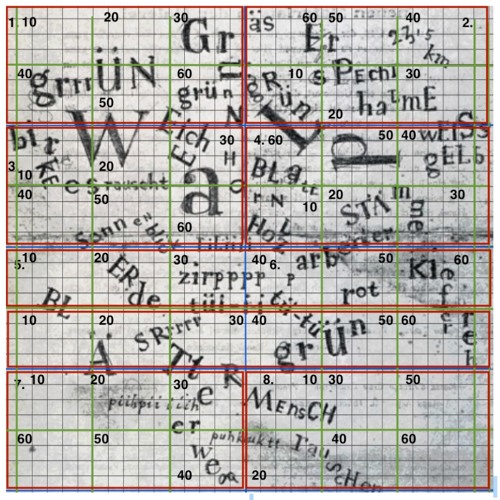 1. 10 20 30 60 50 40 2.
Gr äs Er 2,3'5 km
40 60 10 30
grrrÜN grün specht
50 20
grün hatmE
bir W Eich 30 4. 60 50 40 wEiSS
KE gELb
3 10 20 H BLatt
40 es rauscht a e rN 10 20 STÄmme 30
50 60
Sonnenblick HoLz
arbeiter
5. 10 20 30 40 6. 50 60
ERde zirpppp P Kiefer
BL rot
tüü-ii tü-tü
10 20 30 40 50 60
Ä SRrrrr grün
TtER
7. 10 20 30 8. 10 30 50
piihpii iiih MEnsCH
60 50 er 40 60
puhkuktt
wEg Tau
40 20